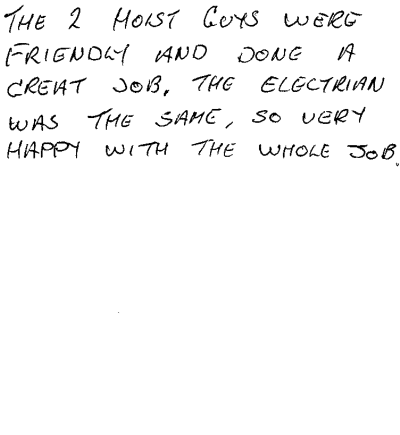 THE 2 HOIST GUYS WERE
FRIENDLY AND DONE A
GREAT JOB, THE ELECTRIAN
WAS THE SAME, SO VERY
HAPPY WITH THE WHOLE JOB.